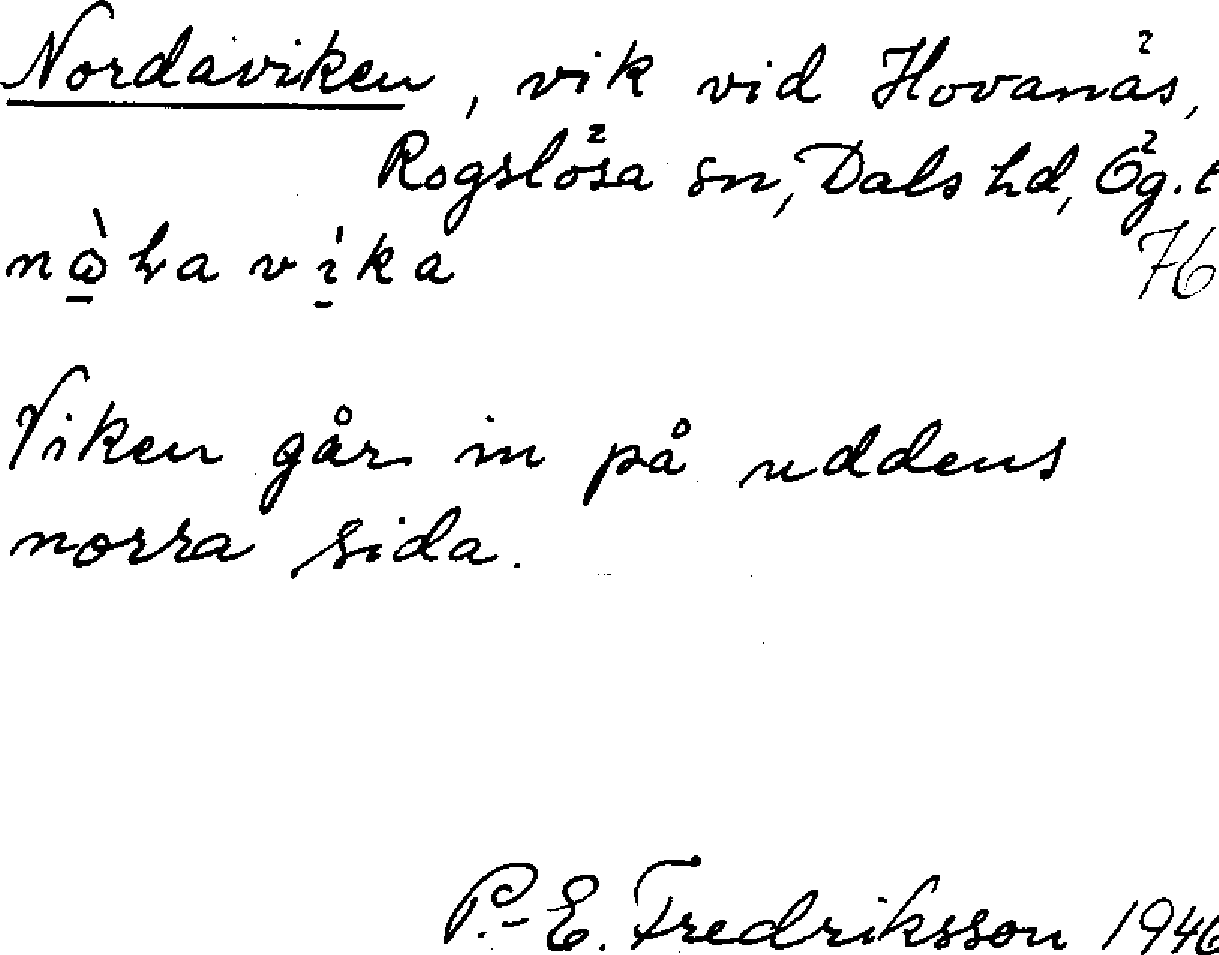 Nordaviken, vik vid Hovanäs,
Rogslösa sn, Dals hd, Ög.
76
Viken går in på uddens
norra sida.
P.-E. Fredriksson 1946